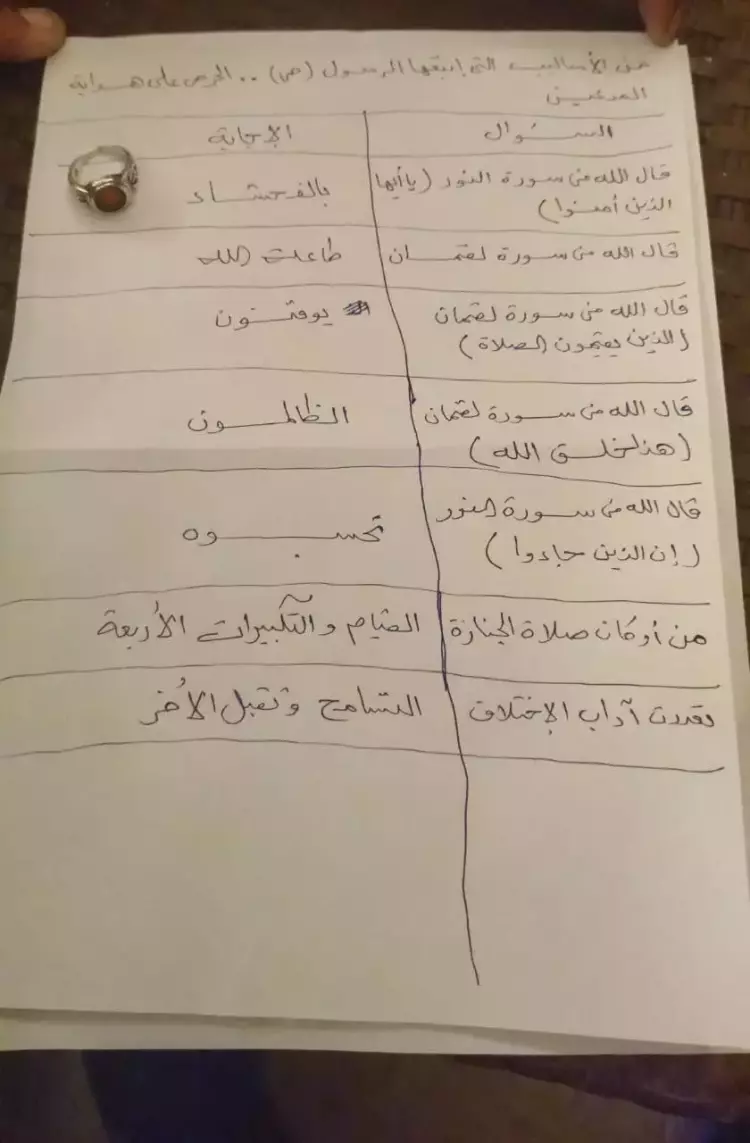 من الأساليب التي إتبعها الرسول (ص) .. الحرص على هداية
المدعين
السؤال	الإجابة
قال الله من سورة النور (ياأيها	بالفحشاء
الذين أمنوا)
قال الله من سورة لقمان	طاعت الله
قال الله من سورة لقمان	يوقنون
(الذين يقيمون الصلاة)
قال الله من سورة لقمان	الظالمون
(هذا خلق الله)
قال الله من سورة النور	تحسبوه
(إن الذين جاءوا)
من أركان صلاة الجنازة	القيام والتكبيرات الأربعة
آداب الإختلاف	التسامح وتقبل الأخر